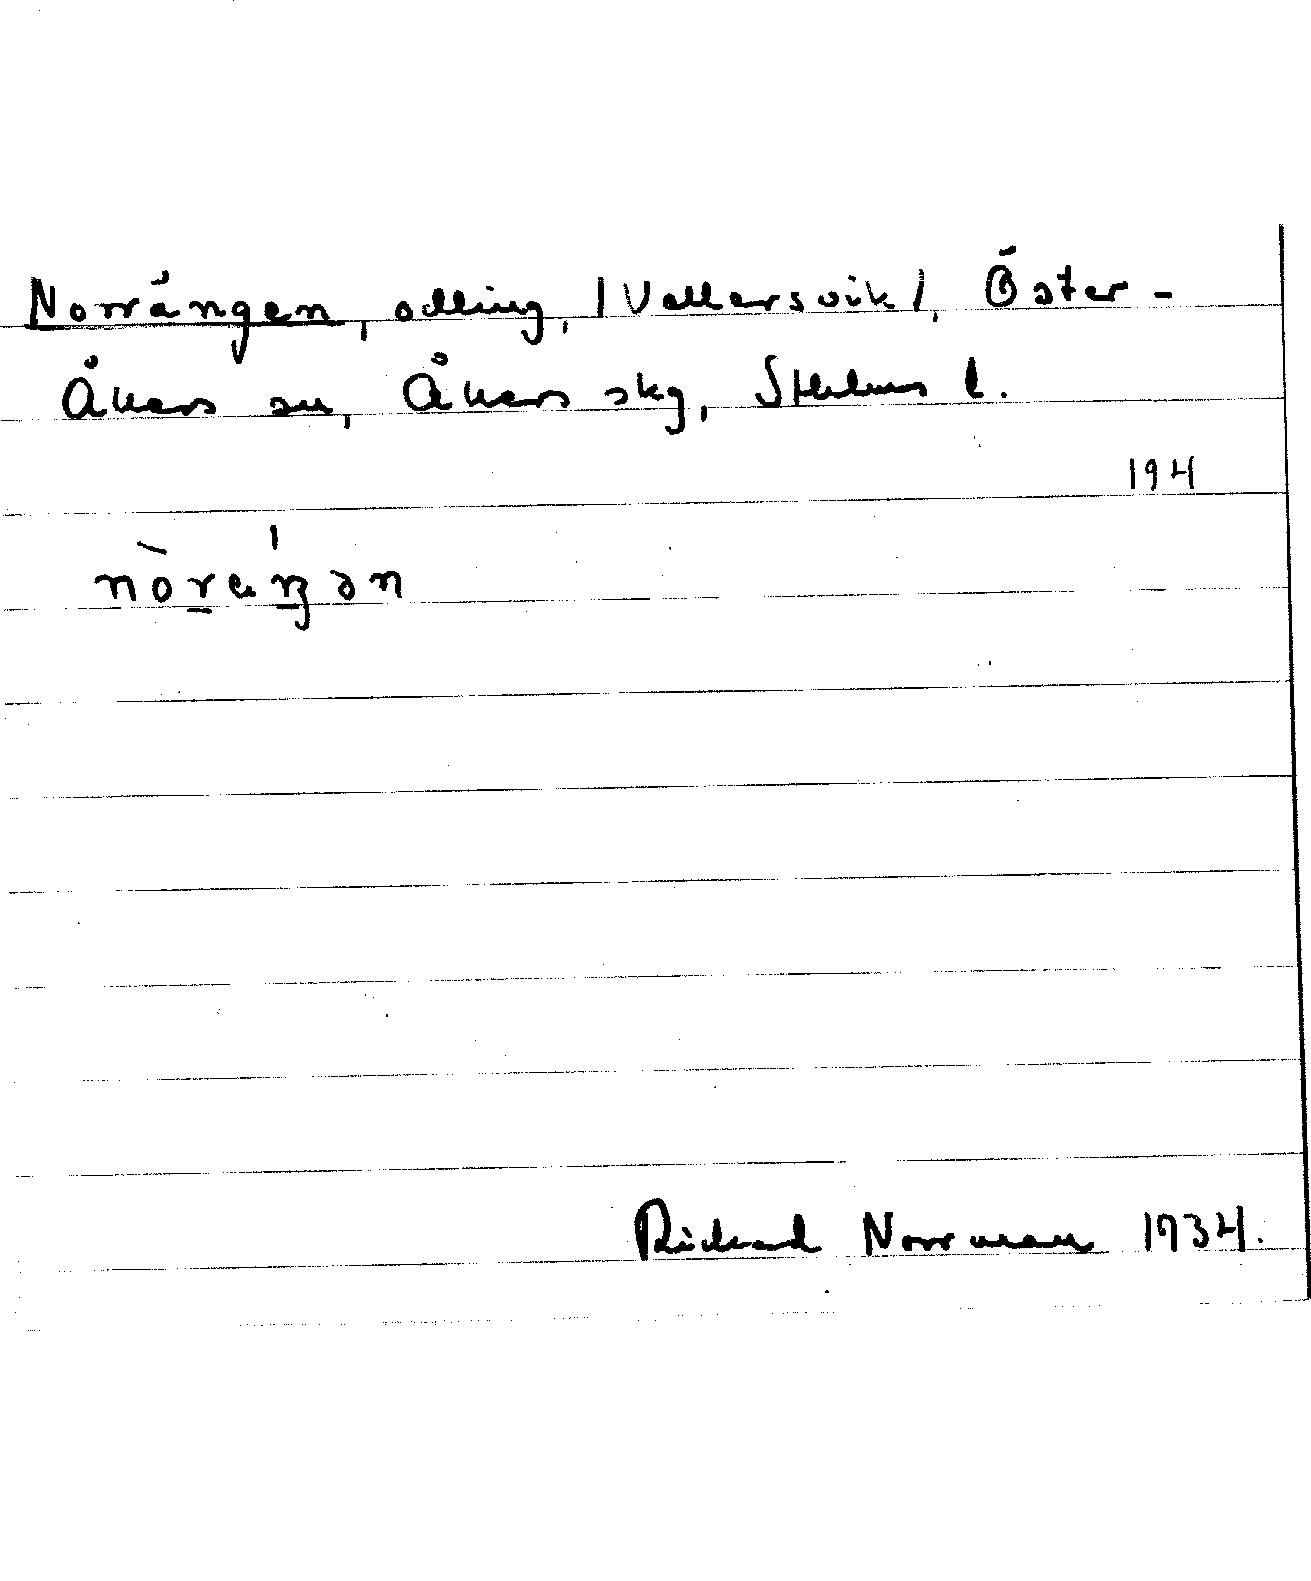 Norrängen, odling, /Vallersvik/, Öster-
Åkers sn, Åkers skg, Sthlms l.
194
nòrәŋәn
Rickard Norrman 1934.